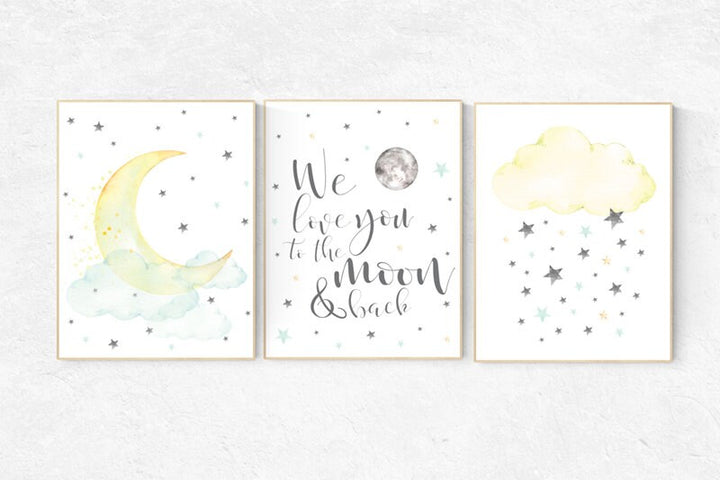 We
love you
to the
moon
& back